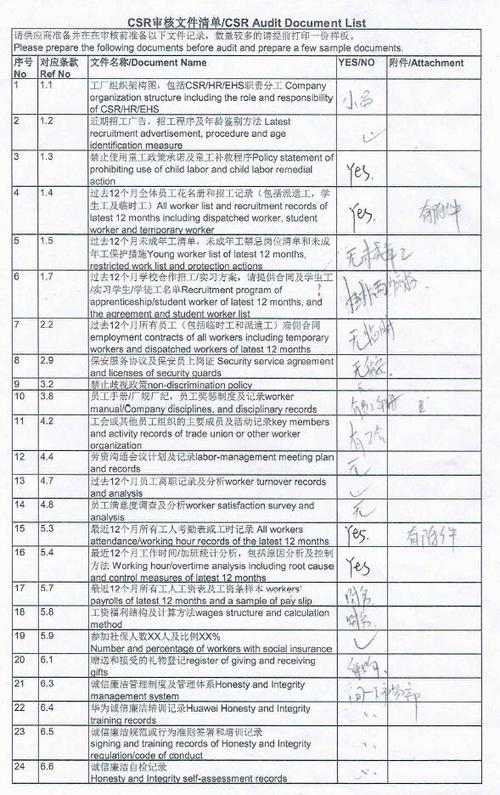 CSR审核文件清单/CSR Audit Document List
请供应商准备并在在审核前准备以下文件记录，数量较多的请提前打印一份样板。
Please prepare the following documents before audit and prepare a few sample documents.
序号 对应条款 文件名称/Document Name YES/NO 附件/Attachment
No Ref No
1 1.1 工厂组织架构图，包括CSR/HR/EHS职责分工 Company
organization structure including the role and responsibility
of CSR/HR/EHS
2 1.2 近期招工广告，招工程序及年龄鉴别方法 Latest
recruitment advertisement, procedure and age
identification measure
3 1.3 禁止使用童工政策承诺及童工补救程序Policy statement of
prohibiting use of child labor and child labor remedial
action
Yes.
4 1.4 过去12个月全体员工花名册和招工记录（包括派遣工，学
生工及临时工）All worker list and recruitment records of
latest 12 months including dispatched worker, student
worker and temporary worker
Yes. 有附件
5 1.5 过去12个月未成年工清单，未成年工禁忌岗位清单和未成
年工保护措施Young worker list of latest 12 months,
restricted work list and protection actions
6 1.7 过去12个月学校合作招工/实习方案，请提供合同及学生工
/实习学生/学徒工名单Recruitment program of
apprenticeship/student worker of latest 12 months, and
the agreement and student worker list
7 2.2 过去12个月所有员工（包括临时工和派遣工）雇佣合同
employment contracts of all workers including temporary
workers and dispatched workers of latest 12 months
8 2.9 保安服务协议及保安员上岗证 Security service agreement
and licenses of security guards
9 3.2 禁止歧视政策non-discrimination policy
10 3.8 员工手册/厂规厂纪，员工奖惩制度及记录worker
manual/Company disciplines, and disciplinary records
11 4.2 工会或其他员工组织的主要成员及活动记录key members
and activity records of trade union or other worker
organization
有工会
12 4.4 劳资沟通会议计划及记录labor-management meeting plan
and records
无
13 4.7 过去12个月员工离职记录及分析worker turnover records
and analysis
14 4.8 员工满意度调查及分析worker satisfaction survey and
analysis
无
15 5.3 最近12个月所有工人考勤表或工时记录 All workers
attendance/working hour records of the latest 12 months
Yes. 有附件
16 5.4 最近12个月工作时间/加班统计分析，包括原因分析及控制
方法 Working hour/overtime analysis including root cause
and control measures of latest 12 months
Yes
17 5.7 最近12个月所有工人工资表及工资条样本 workers'
payrolls of latest 12 months and a sample of pay slip
18 5.8 工资福利结构及计算方法wages structure and calculation
method
19 5.9 参加社保人数XX人及比例XX%
Number and percentage of workers with social insurance
20 6.1 赠送和接受的礼物登记register of giving and receiving
gifts
21 6.3 诚信廉洁管理制度及管理体系Honesty and Integrity
management system
22 6.4 华为诚信廉洁培训记录Huawei Honesty and Integrity
training records
23 6.5 诚信廉洁规范或行为准则签署和培训记录
signing and training records of Honesty and Integrity
regulation/code of conduct
24 6.6 诚信廉洁自检记录
Honesty and Integrity self-assessment records